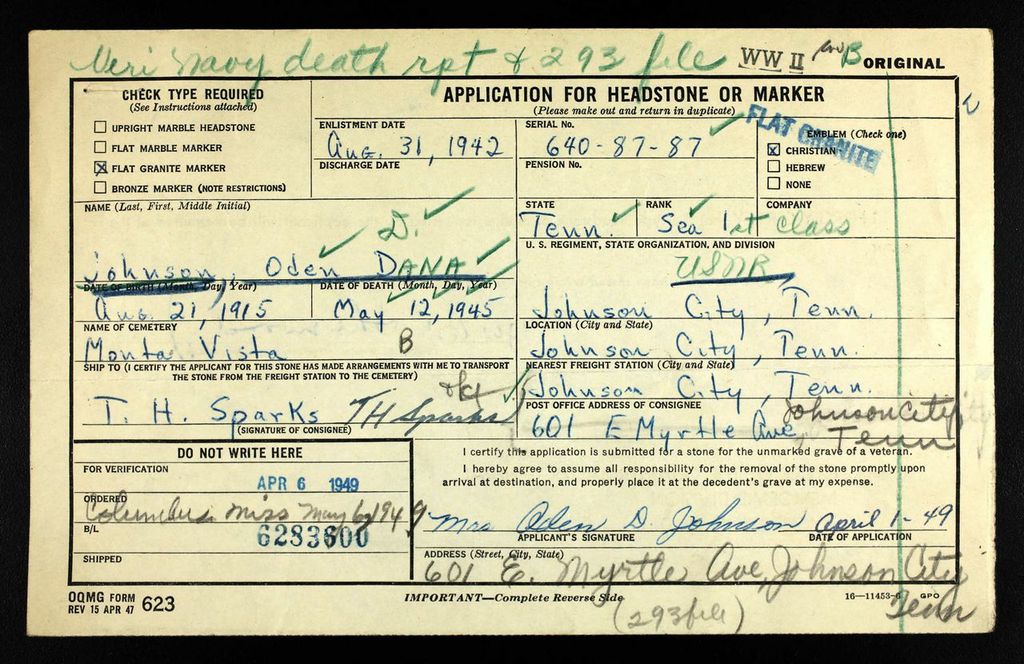 Veri Navy death rpt & 293 file WW II B ORIGINAL
CHECK TYPE REQUIRED
(See Instructions attached)
UPRIGHT MARBLE HEADSTONE
FLAT MARBLE MARKER
FLAT GRANITE MARKER
BRONZE MARKER (NOTE RESTRICTIONS)
APPLICATION FOR HEADSTONE OR MARKER
(Please make out and return in duplicate)
ENLISTMENT DATE
Aug. 31, 1942
DISCHARGE DATE
SERIAL No.
640-87-87
PENSION No.
FLAT GRANITE
EMBLEM (Check one)
CHRISTIAN
HEBREW
NONE
NAME (Last, First, Middle Initial)
D.
Johnson, Oden DANA
STATE
Tenn.
RANK
Sea 1st class
COMPANY
U. S. REGIMENT, STATE ORGANIZATION, AND DIVISION
USNR
DATE OF BIRTH (Month, Day, Year)
Aug. 21, 1915
DATE OF DEATH (Month, Day, Year)
May 12, 1945
Johnson City, Tenn.
NAME OF CEMETERY
Monta Vista
B
LOCATION (City and State)
Johnson City, Tenn.
SHIP TO (I CERTIFY THE APPLICANT FOR THIS STONE HAS MADE ARRANGEMENTS WITH ME TO TRANSPORT
THE STONE FROM THE FREIGHT STATION TO THE CEMETERY)
T. H. Sparks TH Sparks
(SIGNATURE OF CONSIGNEE)
NEAREST FREIGHT STATION (City and State)
Johnson City, Tenn.
POST OFFICE ADDRESS OF CONSIGNEE
601 E Myrtle Ave Johnson City
Tenn
DO NOT WRITE HERE
FOR VERIFICATION
APR 6 1949
ORDERED
Columbus Miss May 6, 1949
B/L
6283600
SHIPPED
I certify this application is submitted for a stone for the unmarked grave of a veteran.
I hereby agree to assume all responsibility for the removal of the stone promptly upon
arrival at destination, and properly place it at the decedent's grave at my expense.
Mrs Oden D. Johnson April 1-49
APPLICANT'S SIGNATURE DATE OF APPLICATION
ADDRESS (Street, City, State)
601 E. Myrtle Ave, Johnson City
Tenn
OQMG FORM
REV 15 APR 47 623
IMPORTANT—Complete Reverse Side
16—11453-6 GPO
(293 file)